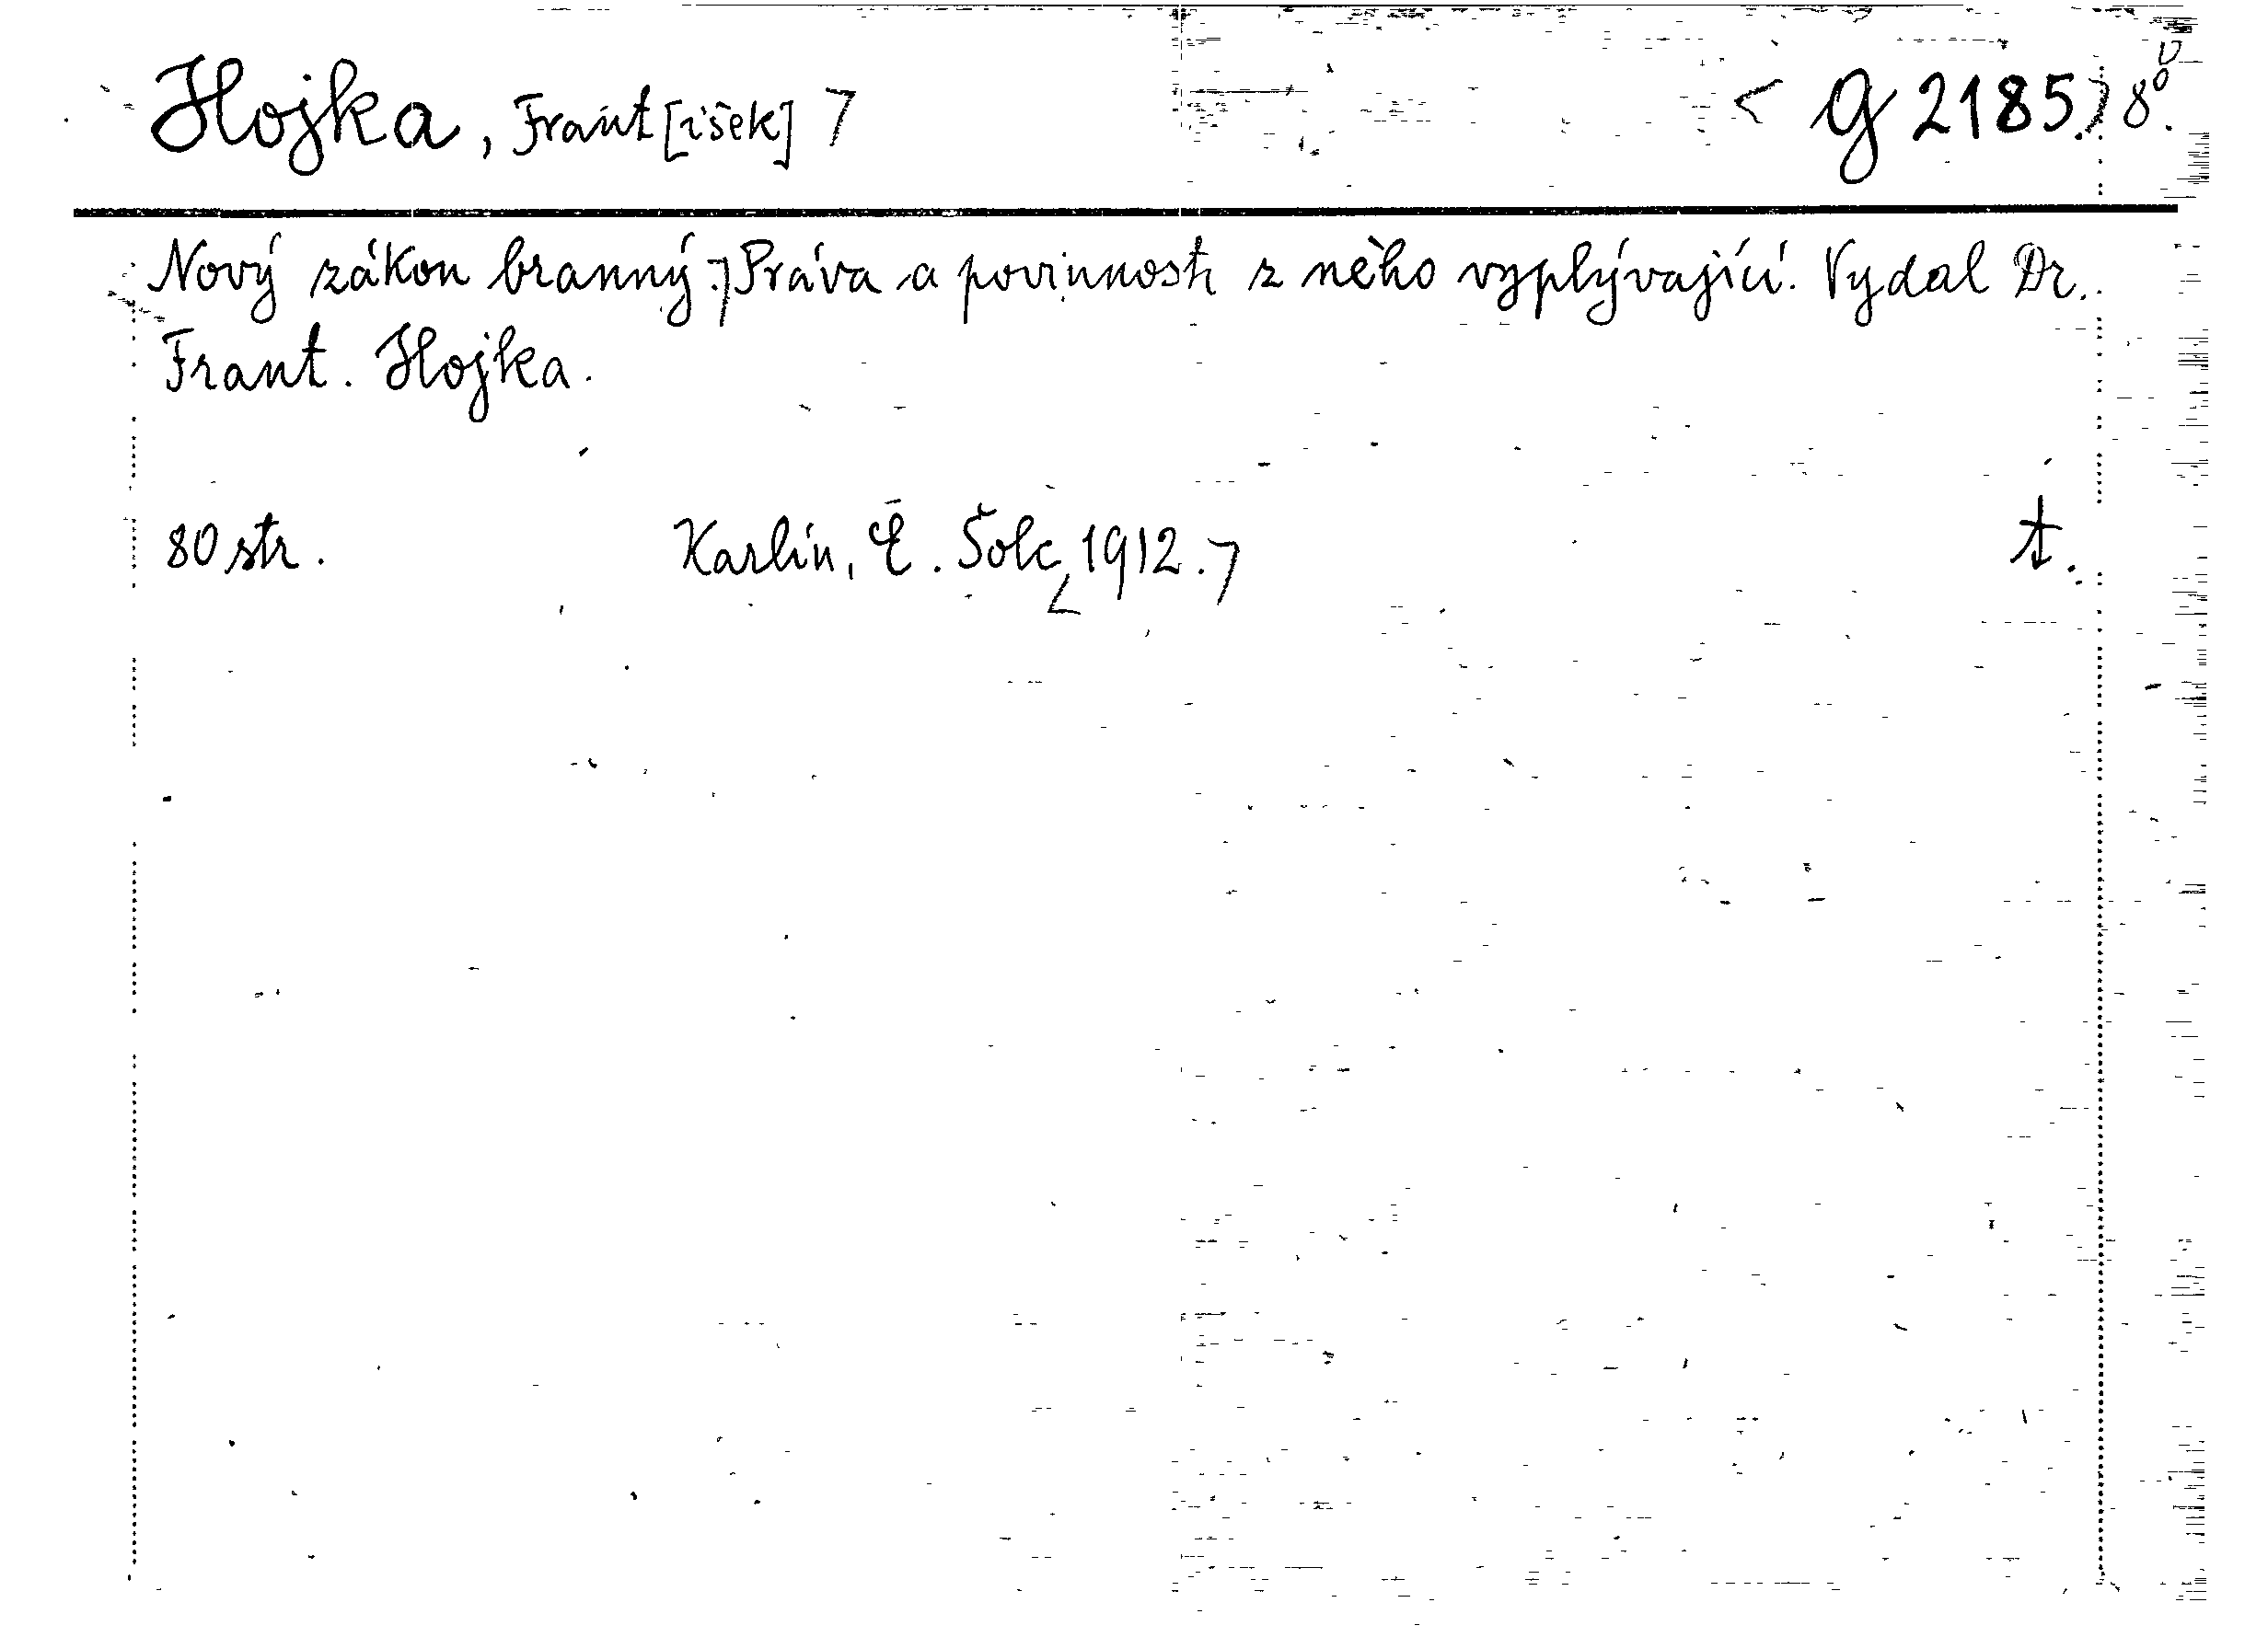 Hojka, Frant[išek] g 2185. 8°.
Nový zákon branný: Práva a povinnosti z něho vyplývající. Vydal Dr.
Frant. Hojka.
80 str. Karlín, E. Šolc, 1912. t.